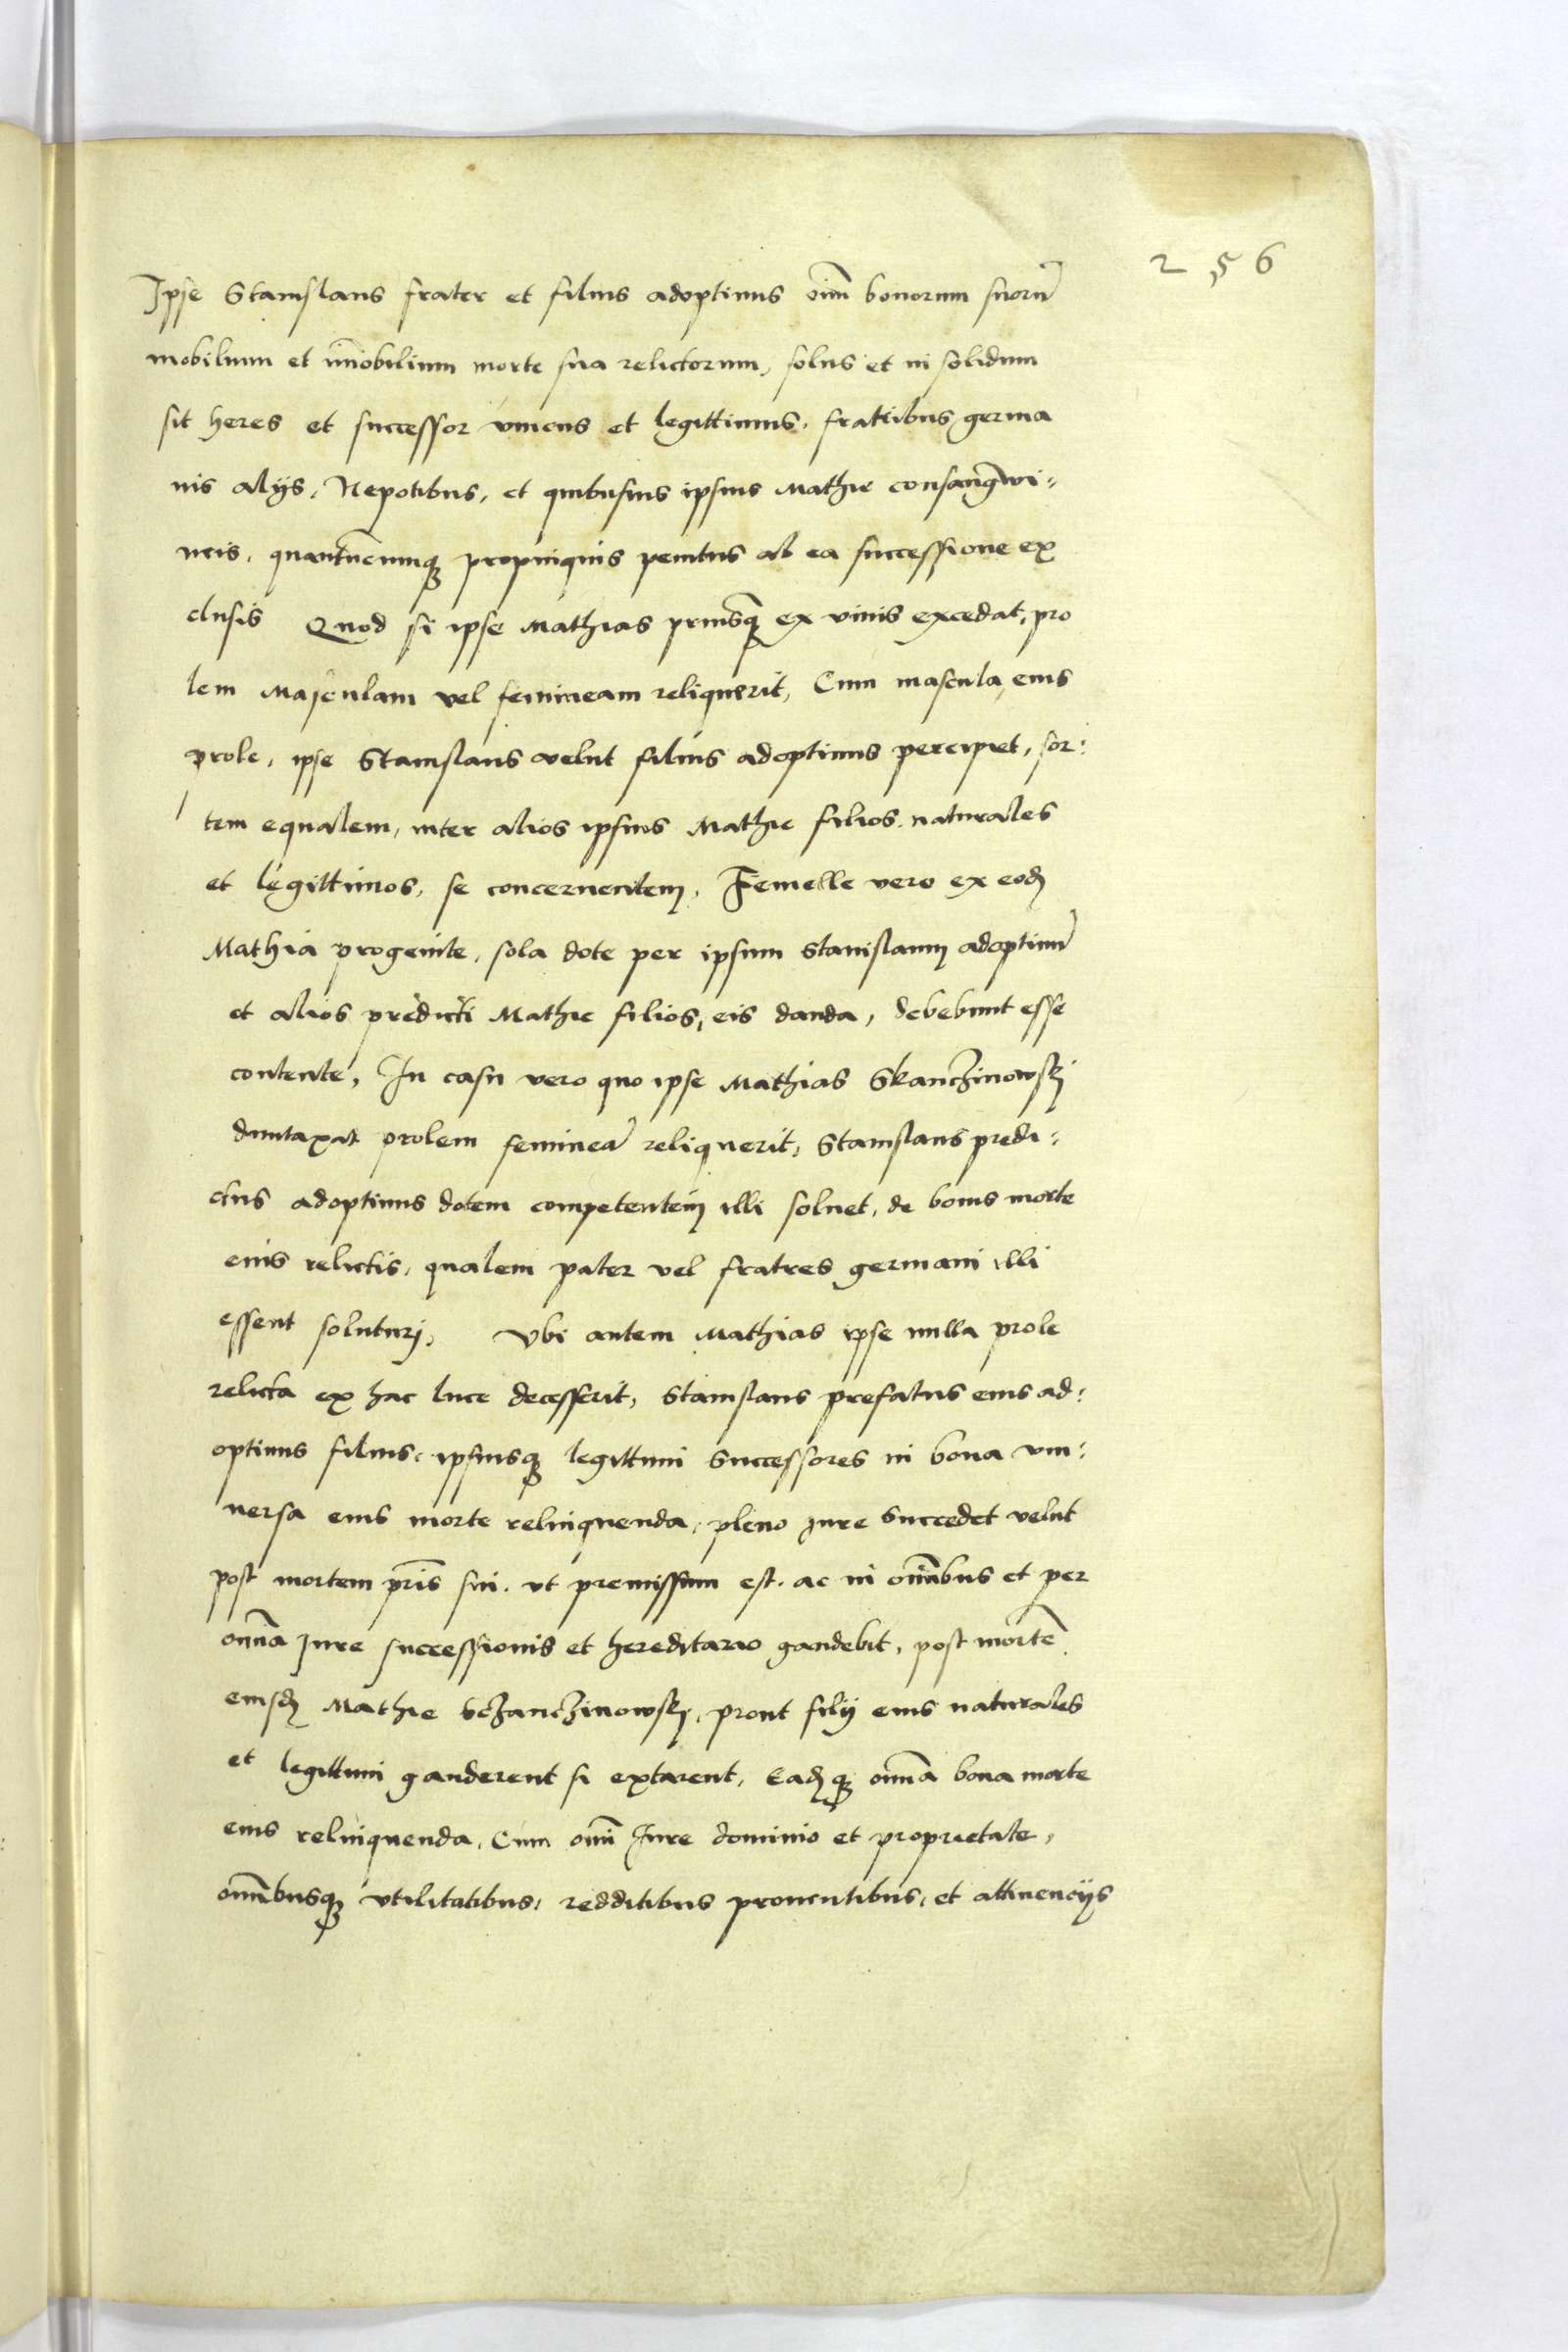 256
Ipse Stanislaus frater et filius adoptiuus oīm bonorum suorū
mobilium et im̄obilium morte sua relictorum, solus et in solidum
sit heres et successor vnicus et legittimus, fratribus germa
nis alijs, Nepotibus, et quibusuis ipsius Mathie consangwi:
neis, quantūcumq propinquis penitus ab ea successione ex
clusis Quod si ipse Mathias priusq̄ ex viuis excedat, pro
lem masculam vel femineam reliquerit, Cum mascula eius
prole, ipse Stanislaus velut filius adoptiuus percipiet, sor:
tem equalem, inter alios ipsius Mathie filios naturales
et legittimos, se concernentem, Femelle vero ex eod
Mathia progenite, sola dote per ipsum Stanislaum adoptiuū
et alios predicti Mathie filios, eis danda, debebunt esse
contente, In casu vero quo ipse Mathias Skanczinowskj
duntaxat prolem femineā reliquerit, Stanislaus predi:
ctus adoptiuus dotem competentem illi soluet, de bonis morte
eius relictis, qualem pater vel fratres germani illi
essent soluturj, Vbi autem Mathias ipse nulla prole
relicta ex hac luce decesserit, Stanislaus prefatus eius ad:
optiuus filius, ipsiusq legittimi successores in bona vni:
uersa eius morte relinquenda, pleno iure succedet velut
post mortem pr̄is sui, vt premissum est, ac in om̄ibus et per
om̄ia iure successionis et hereditario gaudebit, post mortē
eiusd Mathie Sczanczinowskj, prout filij eius naturales
et legittimi gauderent si extarent, Eadq om̄ia bona morte
eius relinquenda, Cum om̄i Iure dominio et proprietate,
om̄ibusq vtilitatibus, redditibus prouentibus, et attinencijs